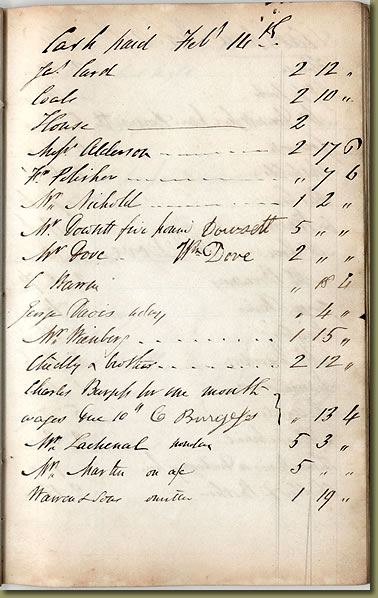 Cash paid Feby 14th
Jas. Card 2 12 "
Coals 2 10 "
House 2
Messrs Alderson 2 17 6
Wm Pelisher " 7 6
Mr. Nicholls 1 2 "
Mr. Dowsett five pound Dowsett 5 " "
Mr Dove Wm Dove 2 " "
C " 18
George " 4 "
Mr. 1 15 "
Chidley & brother 2 12 "
Charles Burgess for one month
wages due 10th C Burgess " 13 4
Mr. Lachenal 5 3 "
Mr. Martin on a/c 5 " "
Warren & Sons 1 19 "